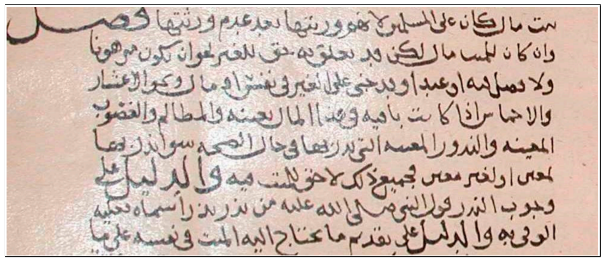 بيت مال كان على المسلمين لا هو ورثتها بعد عدم ورثتها فصل
وان كان للميت مال لكن قد تعلق به حق للغير نحو ان يكون مرهونا
ولا يفضل منه او عبدا وقد جنى على الغير في نفس او مال ونحو الاعشار
والاخماس اذا كانت باقية وهذا المال بعينه والمظالم والغصوب
المعينه والنذور المعينه التي نذر بها في حال الصحه سوا نذر بها
لمعين او لغير معين فجميع ذلك لا حق للميت فيه والدليل على
وجوب النذر قول النبي صلى الله عليه من نذر نذرا سماه فعليه
الوفي به والدليل على تقديم ما يحتاج اليه الميت في نفسه على ما